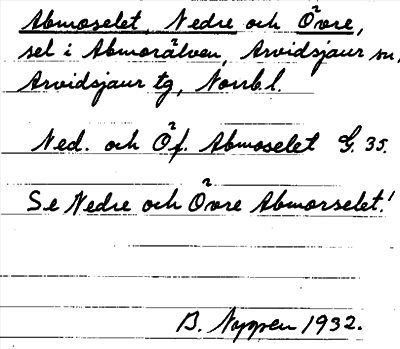 Abmoselet, Nedre och Övre,
sel i Abmorälven, Arvidsjaur sn,
Arvidsjaur tg, Norrb.l.
Ned. och Öf. Abmoselet G. 35.
Se Nedre och Övre Abmorselet!
B. Noppen 1932.